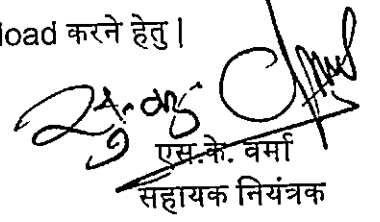 load करने हेतु |
एस.के. वर्मा
सहायक नियंत्रक